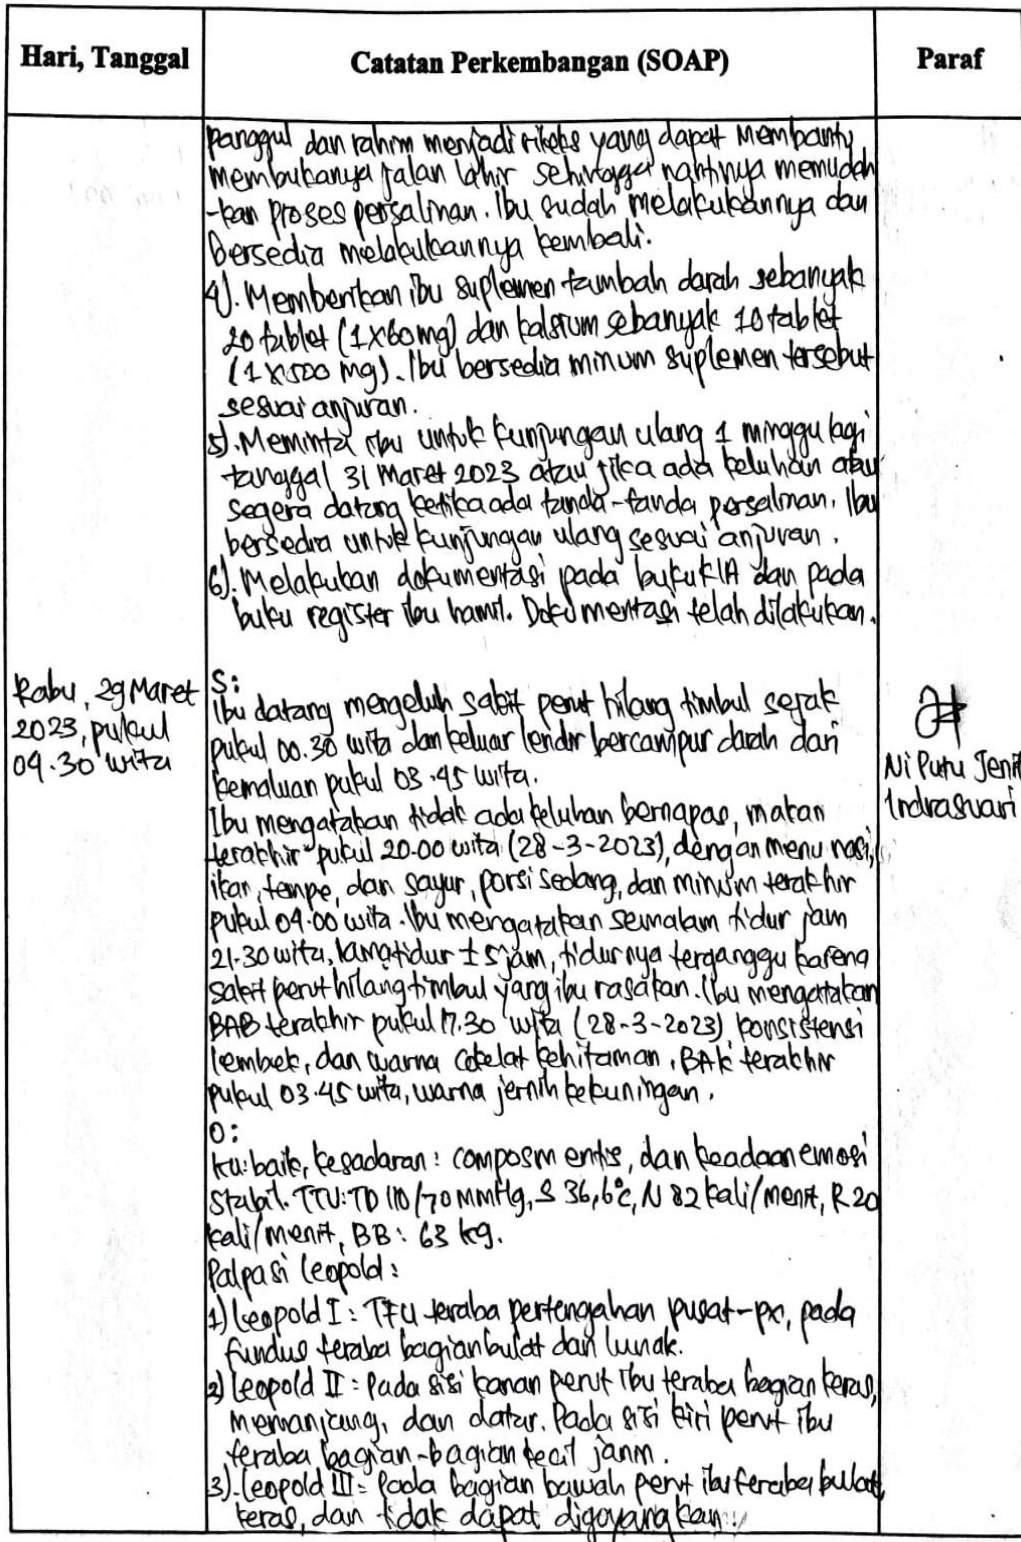 Hari, Tanggal
Catatan Perkembangan (SOAP)
Paraf
panggul dan rahim menjadi rileks yang dapat membantu
membukanya jalan lahir sehingga nantinya memudah
-kan proses persalinan. Ibu sudah melakukannya dan
bersedia melakukannya kembali.
4). Memberikan ibu suplemen tambah darah sebanyak
20 tablet (1x60mg) dan kalsium sebanyak 10 tablet
(1x500 mg). Ibu bersedia minum suplemen tersebut
sesuai anjuran.
5). Meminta ibu untuk kunjungan ulang 1 minggu lagi
tanggal 31 Maret 2023 atau jika ada keluhan atau
segera datang ketika ada tanda-tanda persalinan. Ibu
bersedia untuk kunjungan ulang sesuai anjuran.
6). Melakukan dokumentasi pada buku KIA dan pada
buku register ibu hamil. Dokumentasi telah dilakukan.
Rabu, 29 Maret
2023, pukul
04.30 wita
S:
Ibu datang mengeluh sakit perut hilang timbul sejak
pukul 00.30 wita dan keluar lendir bercampur darah dari
kemaluan pukul 03.45 wita.
Ibu mengatakan tidak ada keluhan bernapas, makan
terakhir pukul 20.00 wita (28-3-2023), dengan menu nasi,
ikan, tempe, dan sayur, porsi sedang, dan minum terakhir
pukul 04.00 wita. Ibu mengatakan semalam tidur jam
21.30 wita, lama tidur ± 5 jam, tidurnya terganggu karena
sakit perut hilang timbul yang ibu rasakan. Ibu mengatakan
BAB terakhir pukul 17.30 wita (28-3-2023) konsistensi
lembek, dan warna cokelat kehitaman, BAK terakhir
pukul 03.45 wita, warna jernih kekuningan.
O:
Ku: baik, kesadaran: composmentis, dan keadaan emosi
stabil. TTV: TD 110/70 mmHg, S 36,6°c, N 82 kali/menit, R 20
kali/menit, BB: 63 kg.
Palpasi Leopold:
1) Leopold I: TFU teraba pertengahan pusat-px, pada
fundus teraba bagian bulat dan lunak.
2) Leopold II: Pada sisi kanan perut ibu teraba bagian keras,
memanjang, dan datar. Pada sisi kiri perut ibu
teraba bagian-bagian kecil janin.
3). Leopold III: Pada bagian bawah perut ibu teraba bulat,
keras, dan tidak dapat digoyangkan.
Ni Putu Jenit
Indrasuari